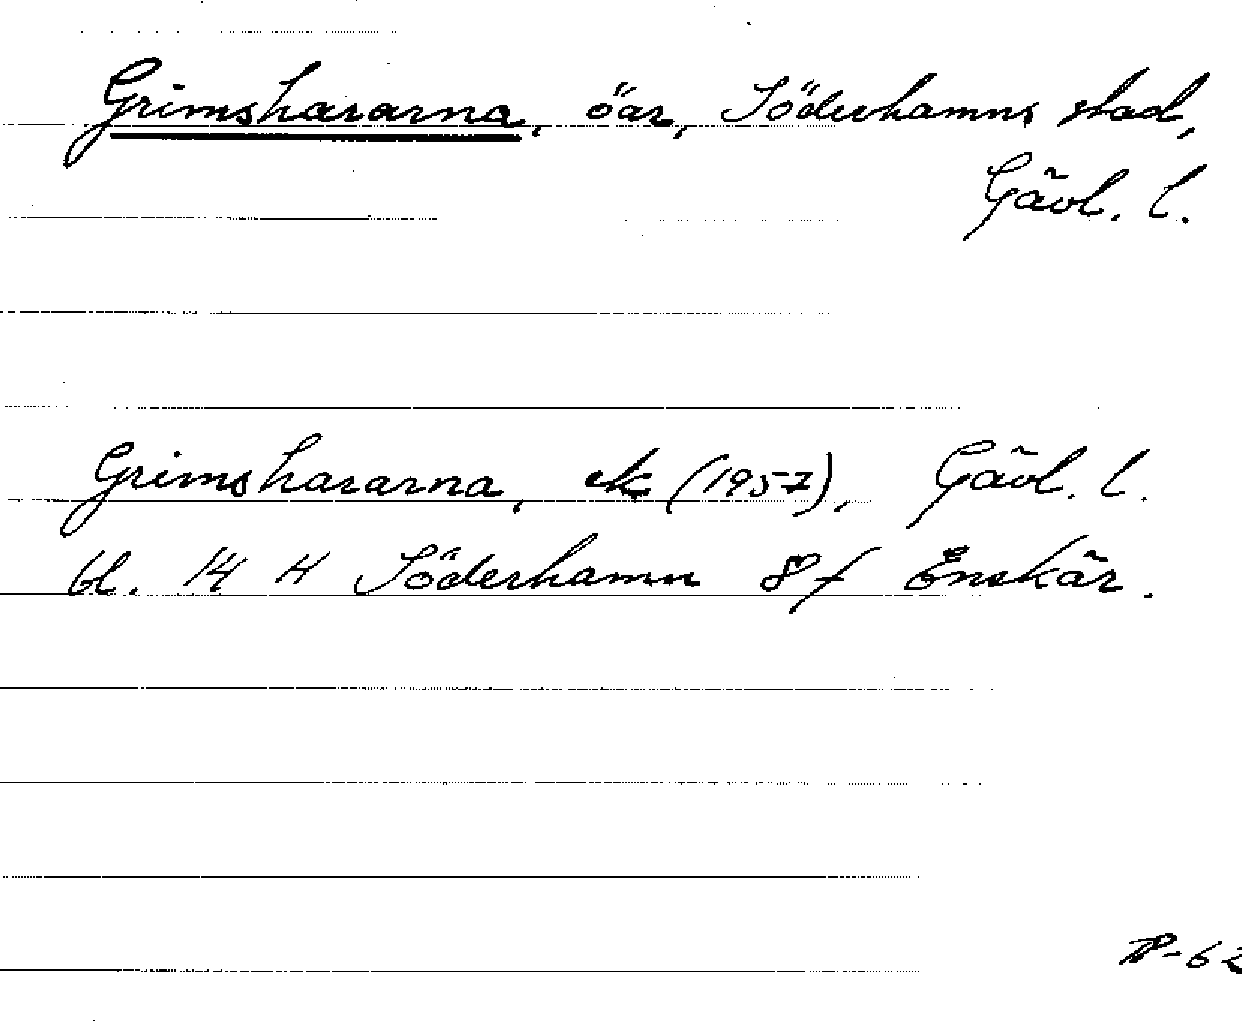 Grimshararna, öar, Söderhamns stad,
Gävl. l.
Grimshararna, ek (1957), Gävl. l.
bl. 14 H Söderhamn 8 f Enskär.
-62